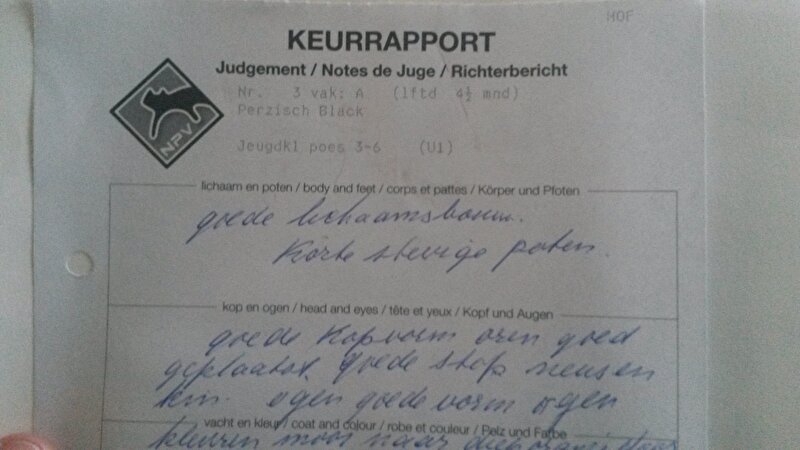 MOF
KEURRAPPORT
Judgement / Notes de Juge / Richterbericht
Nr. 3 vak: A (lftd 4½ mnd)
Perzisch Black
NPV
Jeugdkl poes 3-6 (U1)
lichaam en poten / body and feet / corps et pattes / Körper und Pfoten
goede lichaamsbouw.
Korte stevige poten.
kop en ogen / head and eyes / tête et yeux / Kopf und Augen
goede kopvorm oren goed
geplaatst. goede stop neus en
kin. ogen goede vorm ogen
vacht en kleur / coat and colour / robe et couleur / Pelz und Farbe
kleuren mooi naar